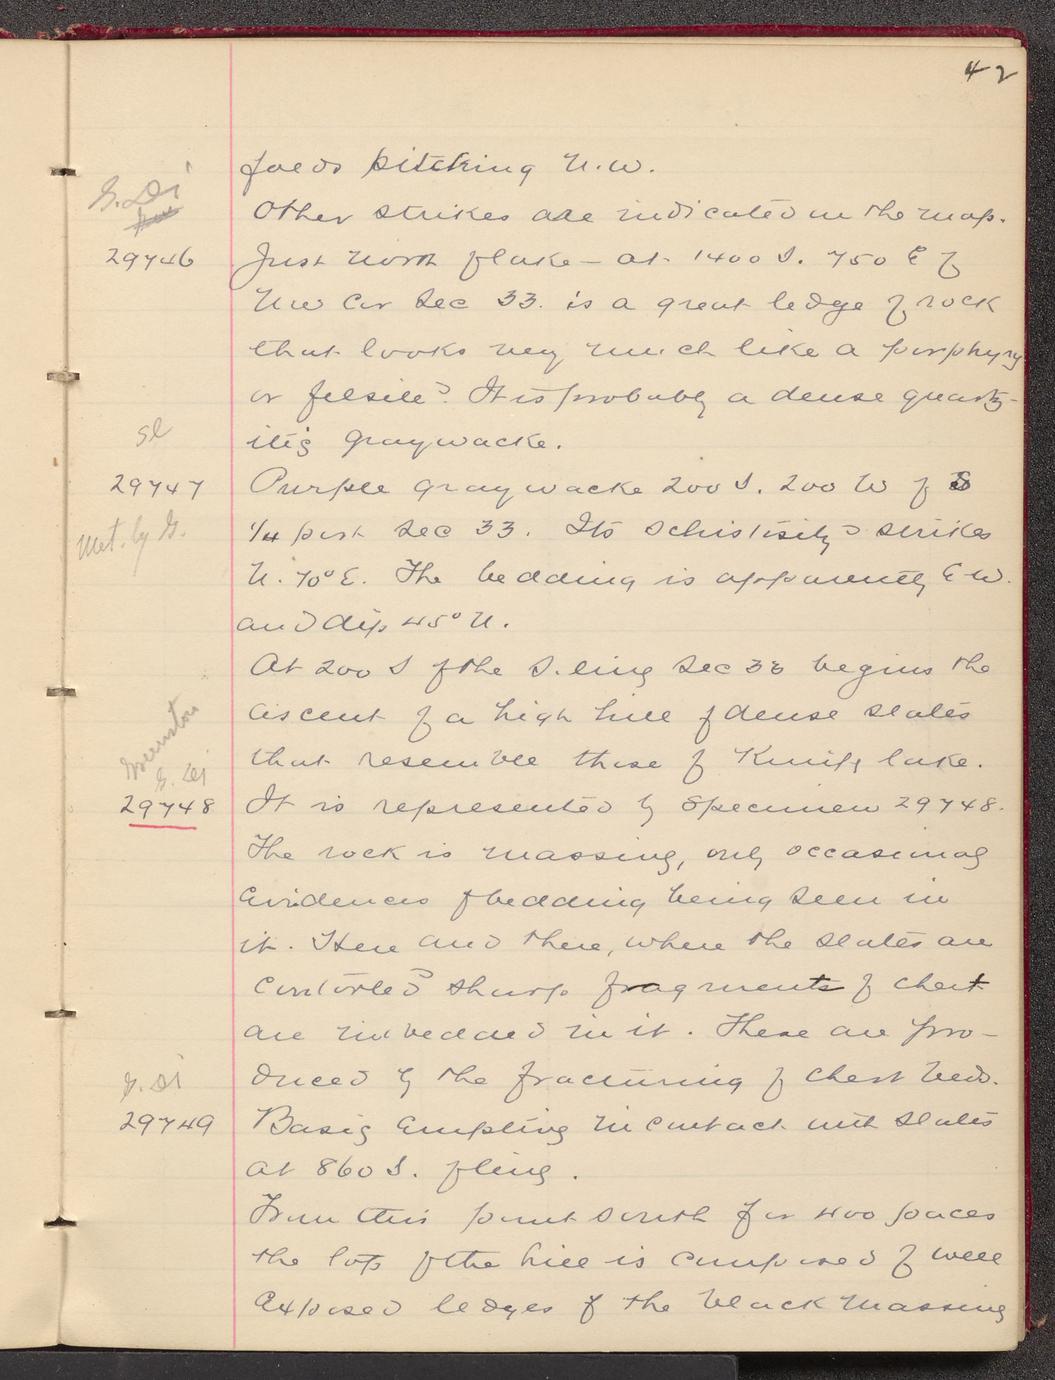 42
folds pitching N.W.
G. Di
Other strikes are indicated on the map.
29746 Just north of lake - at 1400 S. 750 E of
NW Cor Sec 33. is a great ledge of rock
that looks very much like a porphyry
or felsite. It is probably a dense quartz-
itic graywacke.
sl
29747 Purple graywacke 200 S. 200 W of S
1/4 post Sec 33. Its schistosity strikes
Met. by G.
N. 70° E. The bedding is apparently E W.
and dip 45° N.
At 200 S of the S. line Sec 33 begins the
ascent of a high hill of dense slates
Greenstone
that resemble those of Knife lake.
G. Di
29748 It is represented by Specimen 29748.
The rock is massive, only occasional
evidences of bedding being seen in
it. Here and there, where the slates are
contorted sharp fragments of chert
are imbedded in it. These are pro-
G. Di
duced by the fracturing of chert beds.
29749 Basic eruptive in contact with slates
at 860 S. of line.
From this point south for 400 paces
the top of the hill is composed of well
exposed ledges of the black massive